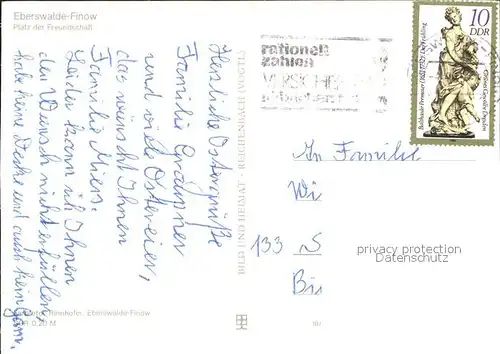 Eberswalde-Finow
Platz der Freundschaft
Herzliche Ostergrüße
Familie Gräupner
und viele Ostereier,
das wünscht Ihnen
Familie Miers.
Leider kann ich Ihnen
den Wunsch nicht erfüllen,
habe keine Decke und auch kein Garn.
BILD UND HEIMAT REICHENBACH (VOGTL)
Eberswalde-Finow
0,20 M
rationell
zahlen
10
DDR
Balthasar Permoser (1651-1732) Der Frühling
Grünes Gewölbe Dresden
An Familie
Wi
133 S
Bi
privacy protection
Datenschutz